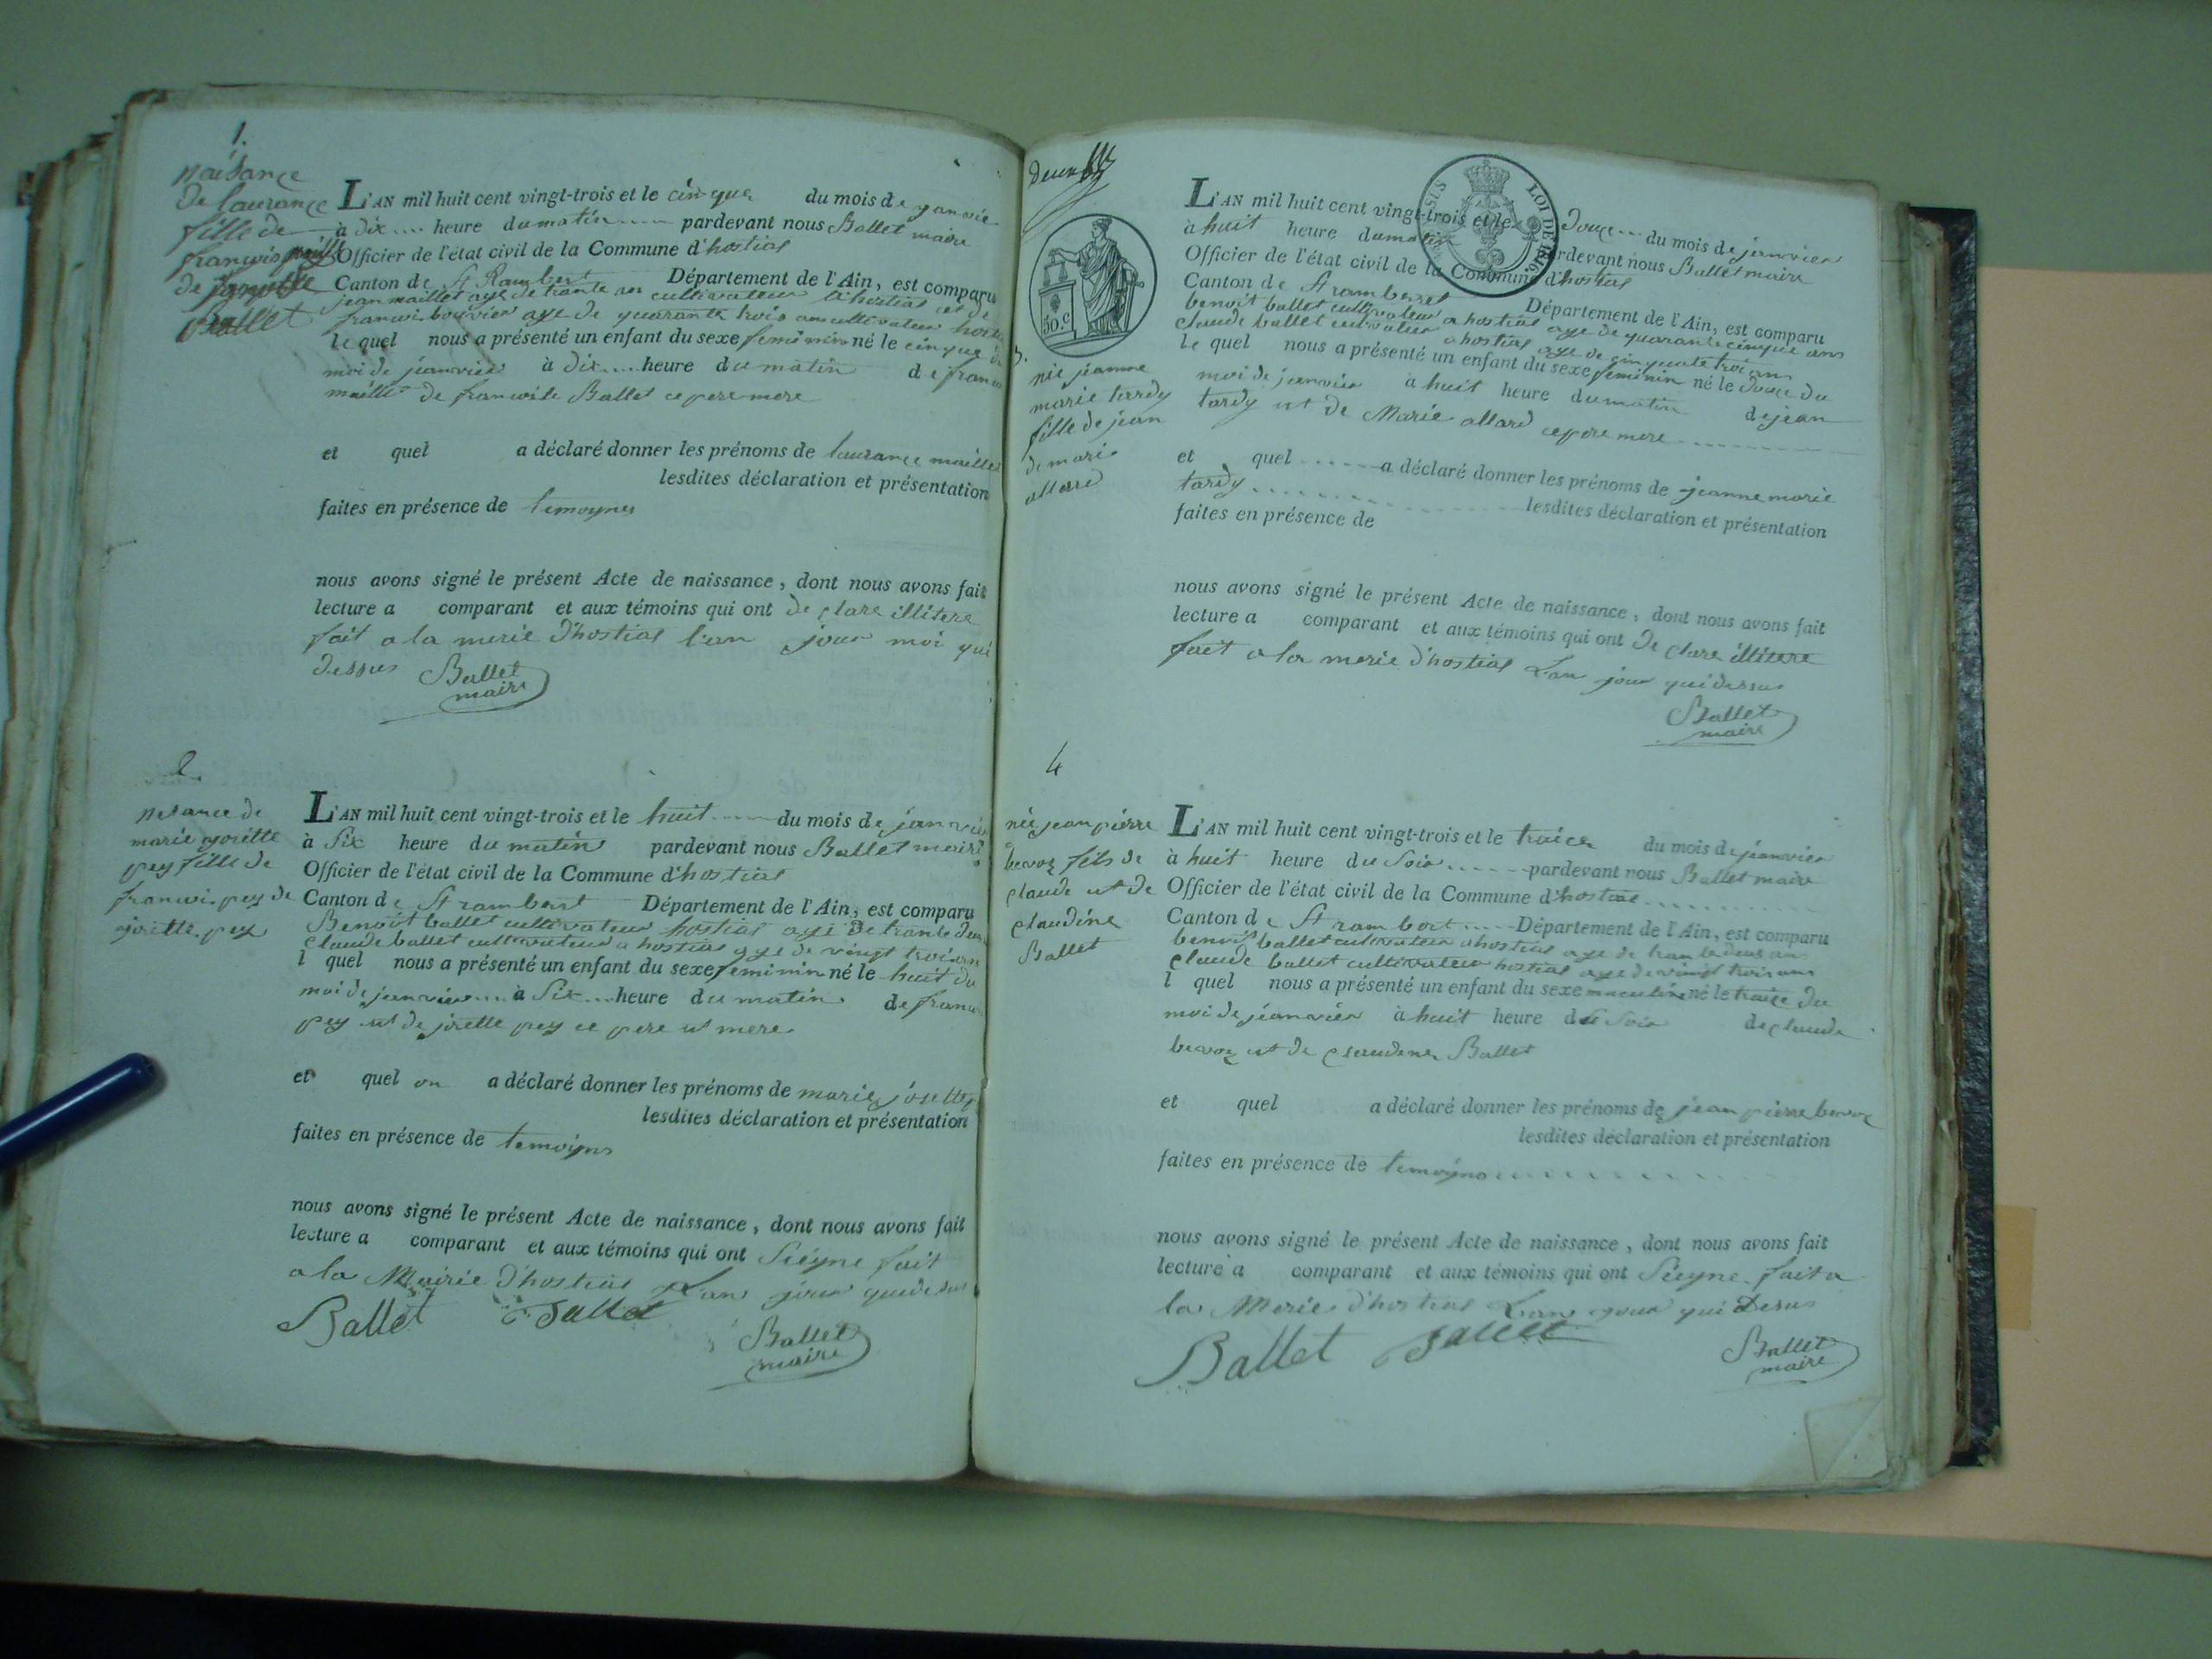 1.
naisance
de laurance
fille de
francois
de
Ballet
L'AN mil huit cent vingt-trois et le cinque du mois de janvie
à dix .... heure du matin ---- pardevant nous Ballet maire
Officier de l'état civil de la Commune d'hostias
Canton de St Rambert Département de l'Ain, est comparu
jean maillet aye de trante ans cultivateur a hostias et de
francois bouvier aye de quarante trois ans cultivateur hostia
le quel nous a présenté un enfant du sexe feminin né le cinque du
moi de jeanvier à dix .... heure du matin de francoi
maillet de francoise Ballet ce pere mere
et quel a déclaré donner les prénoms de laurance maillet
lesdites déclaration et présentation
faites en présence de temoyns
nous avons signé le présent Acte de naissance, dont nous avons fait
lecture a comparant et aux témoins qui ont de clare illitere
fait a la merie d'hostias l'an jour moi qui
dessus Ballet
maire
2.
nesance de
marie josette
pey fille de
francois pey de
josette pey
L'AN mil huit cent vingt-trois et le huit ---- du mois de janvier
à Six heure du matin pardevant nous Ballet maire
Officier de l'état civil de la Commune d'hostias
Canton de St rambert Département de l'Ain, est comparu
Benoit ballet cultivateur hostias aye de trante deux
claude ballet cultivateur a hostias aye de vingt trois an
l quel nous a présenté un enfant du sexe feminin né le huit du
moi de janvier .... à Six ... heure du matin de francoi
pey et de josette pey ce pere et mere
et quel on a déclaré donner les prénoms de marie josette
lesdites déclaration et présentation
faites en présence de temoigns
nous avons signé le présent Acte de naissance, dont nous avons fait
lecture a comparant et aux témoins qui ont Sieyne fait
a la Mairie d'hostias L'an jour quidesus
Ballet Ballet
Ballet
maire
LOI DE 1816.
50.c
3.
née jeanne
marie tardy
fille de jean
de marie
allard
L'AN mil huit cent vingt-trois et le douze --- du mois de jeanvier
à huit heure du matin pardevant nous Ballet maire
Officier de l'état civil de la Commune d'hostias
Canton de St rambert Département de l'Ain, est comparu
benoit ballet cultivateur a hostias aye de quarante cinque ans
claude ballet cultivateur a hostias aye de cinquate troi ans
le quel nous a présenté un enfant du sexe feminin né le douze du
moi de janvier à huit heure du matin de jean
tardy et de Marie allard ce pere mere
et quel ------ a déclaré donner les prénoms de jeanne marie
tardy lesdites déclaration et présentation
faites en présence de
nous avons signé le présent Acte de naissance, dont nous avons fait
lecture a comparant et aux témoins qui ont de clare illitere
fait a la merie d'hostias L'an jour qui dessus
Ballet
maire
4
née jean pierre
bevoz fils de
claude et de
claudine
Ballet
L'AN mil huit cent vingt-trois et le traize du mois de jeanvier
à huit heure du Soir ------ pardevant nous Ballet maire
Officier de l'état civil de la Commune d'hostias
Canton de St rambert .... Département de l'Ain, est comparu
benoit ballet cultivateur a hostias aye de trante deux an
claude ballet cultivateur hostias aye de vingt trois ans
l quel nous a présenté un enfant du sexe masculine né le traize du
moi de jéanvier à huit heure du Soir de claude
bevoz et de claudine Ballet
et quel a déclaré donner les prénoms de jean pierre bevoz
lesdites déclaration et présentation
faites en présence de temoigns
nous avons signé le présent Acte de naissance, dont nous avons fait
lecture a comparant et aux témoins qui ont Sieyne fait a
la Merie d'hostias L'an jour qui desus
Ballet Ballet
Ballet
maire